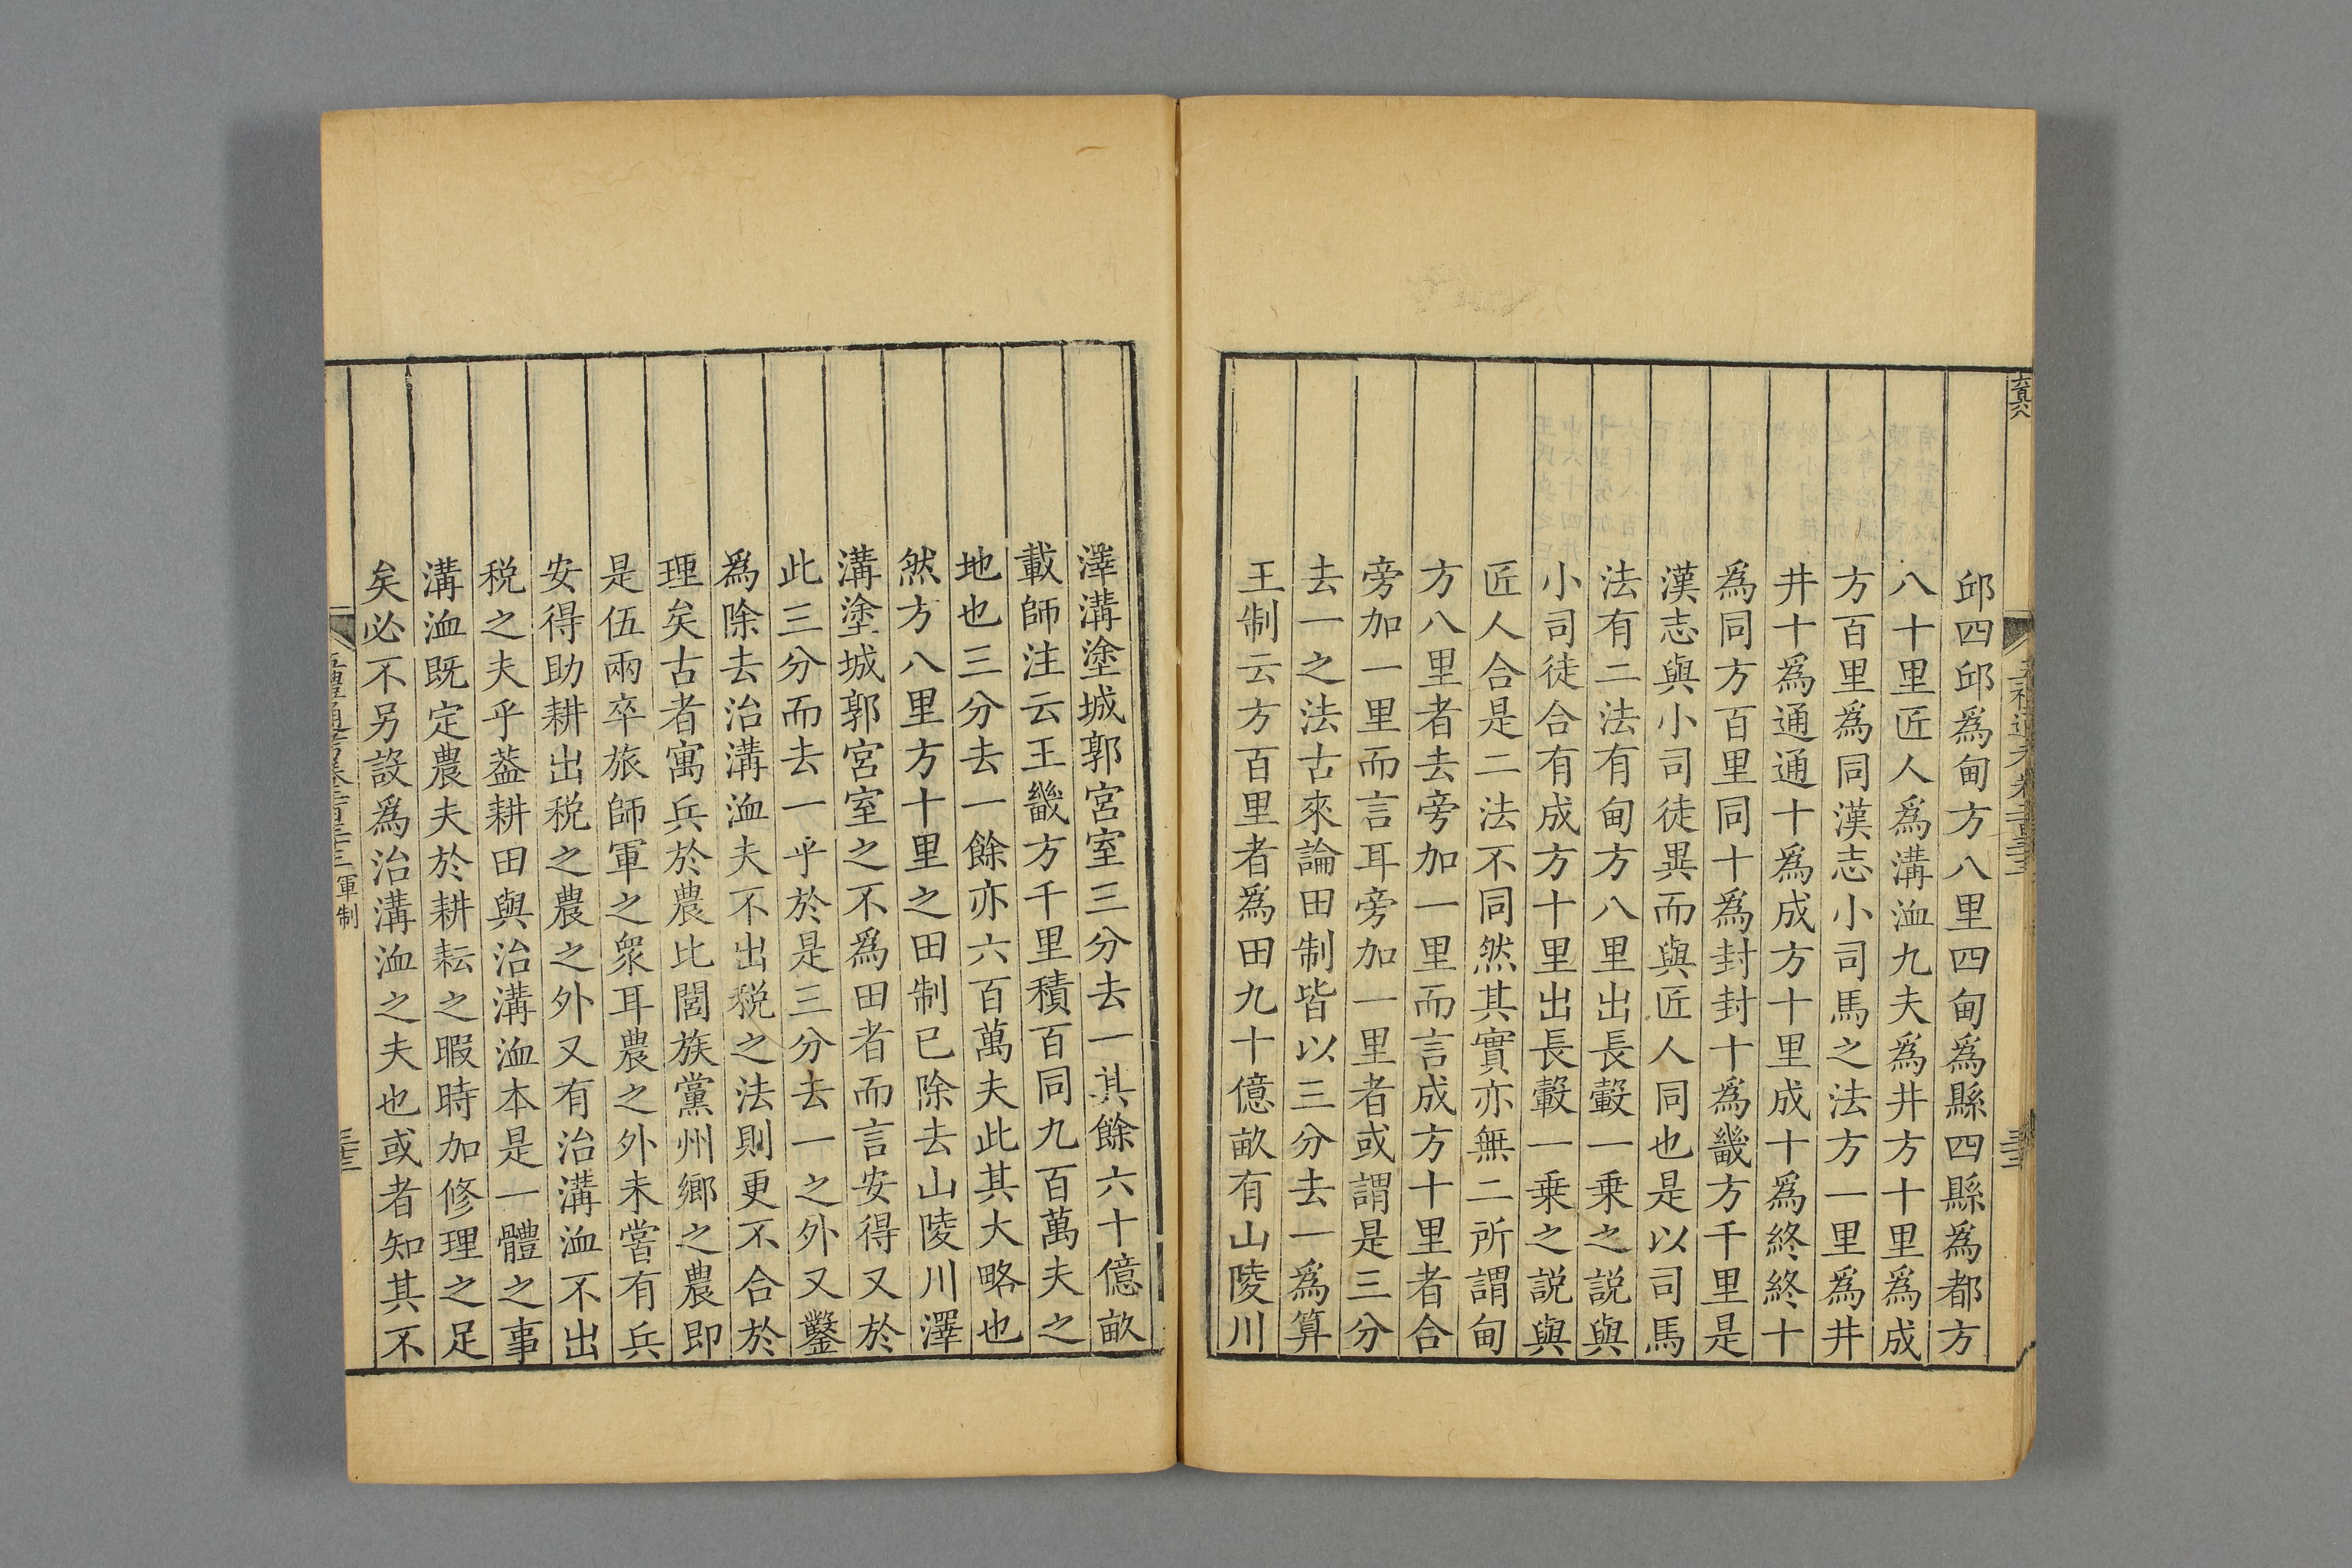 邱四邱爲甸方八里四甸爲縣四縣爲都方
八十里匠人爲溝洫九夫爲井方十里爲成
方百里爲同漢志小司馬之法方一里爲井
井十爲通通十爲成方十里成十爲終終十
爲同方百里同十爲封封十爲畿方千里是
漢志與小司徒異而與匠人同也是以司馬
法有二法有甸方八里出長轂一乗之説與
小司徒合有成方十里出長轂一乗之説與
匠人合是二法不同然其實亦無二所謂甸
方八里者去旁加一里而言成方十里者合
旁加一里而言耳旁加一里者或謂是三分
去一之法古來論田制皆以三分去一爲算
王制云方百里者爲田九十億畝有山陵川
澤溝塗城郭宮室三分去一其餘六十億畝
載師注云王畿方千里積百同九百萬夫之
地也三分去一餘亦六百萬夫此其大略也
然方八里方十里之田制已除去山陵川澤
溝塗城郭宮室之不爲田者而言安得又於
此三分而去一乎於是三分去一之外又鑿
爲除去治溝洫夫不出税之法則更不合於
理矣古者寓兵於農比閭族黨州鄉之農即
是伍兩卒旅師軍之衆耳農之外未嘗有兵
安得助耕出税之農之外又有治溝洫不出
税之夫乎葢耕田與治溝洫本是一體之事
溝洫既定農夫於耕耘之暇時加修理之足
矣必不另設爲治溝洫之夫也或者知其不
軍制